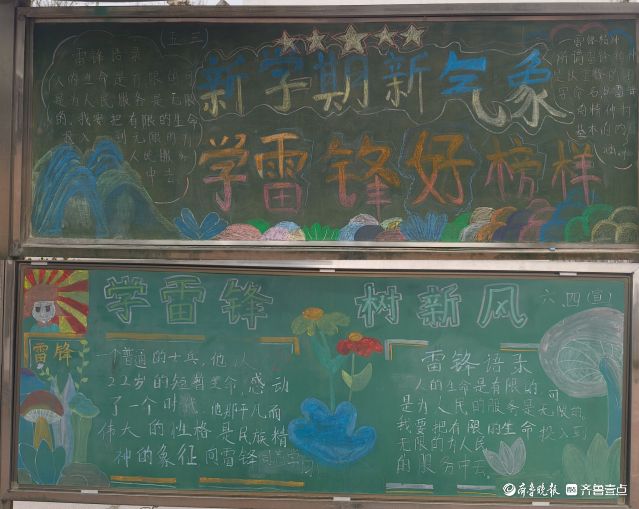 (五三)
雷锋语录
人的生命是有限的可
是为人民服务是无限
的,我要把有限的生命
投入到无限的为
人民服务
中去
新学期新气象
学雷锋好榜样
雷锋精神
学雷锋 树新风
六.四(宣)
雷锋
一个普通的士兵,他以
22岁的短暂生命,感动
了一个时代.他那平凡而
伟大的性格是民族精
神的象征 向雷锋同志学习
雷锋语录
人的生命是有限的,可
是为人民的服务是无限的,
我要把有限的生命投入到
无限的为人民
的服务中去
齐鲁晚报 齐鲁壹点